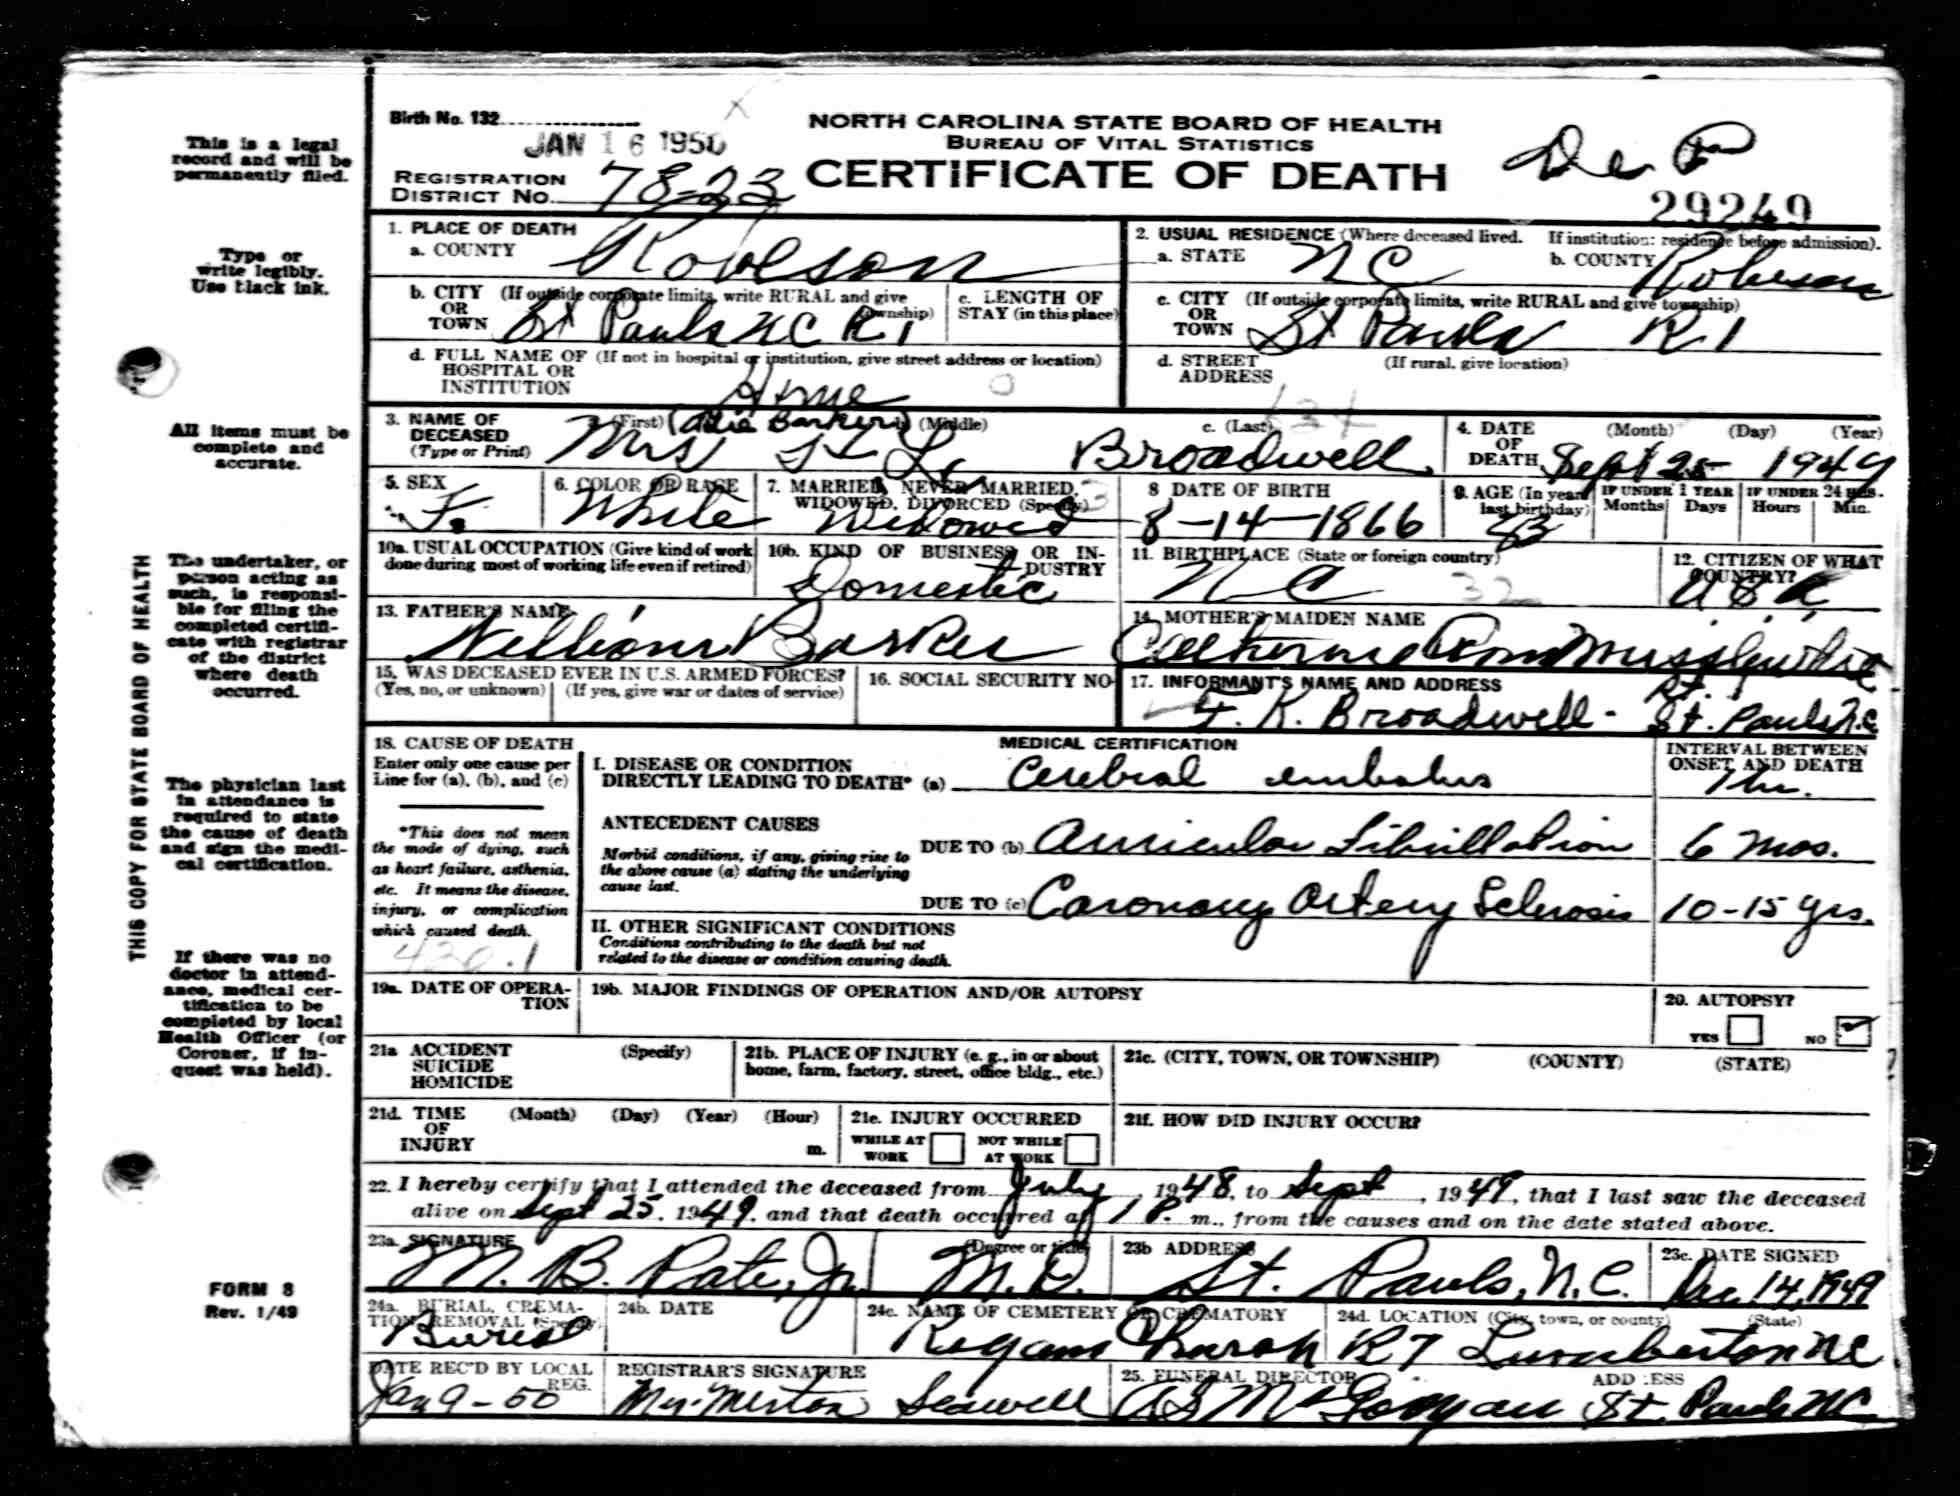 Birth No. 132
JAN 16 1950
NORTH CAROLINA STATE BOARD OF HEALTH
BUREAU OF VITAL STATISTICS
CERTIFICATE OF DEATH
REGISTRATION DISTRICT No. 78-23
29249
This is a legal record and will be permanently filed.
Type or write legibly. Use black ink.
All items must be complete and accurate.
The undertaker, or person acting as such, is responsible for filing the completed certificate with registrar of the district where death occurred.
The physician last in attendance is required to state the cause of death and sign the medical certification.
If there was no doctor in attendance, medical certification to be completed by local Health Officer (or Coroner, if inquest was held).
FORM 8
Rev. 1/49
THIS COPY FOR STATE BOARD OF HEALTH
1. PLACE OF DEATH
a. COUNTY Robeson
b. CITY OR TOWN (If outside corporate limits, write RURAL and give township) St Pauls NC R1
c. LENGTH OF STAY (in this place)
d. FULL NAME OF HOSPITAL OR INSTITUTION (If not in hospital or institution, give street address or location) Home
2. USUAL RESIDENCE (Where deceased lived. If institution: residence before admission).
a. STATE NC
b. COUNTY Robeson
c. CITY OR TOWN (If outside corporate limits, write RURAL and give township) St Pauls R1
d. STREET ADDRESS (If rural, give location)
634
3. NAME OF DECEASED (Type or Print) (First) (Middle) c. (Last)
Barker)
Mrs L. Broadwell
4. DATE OF DEATH (Month) (Day) (Year) Sept 25 1949
5. SEX F.
6. COLOR OR RACE White
7. MARRIED, NEVER MARRIED, WIDOWED, DIVORCED (Specify) Widowed
8 DATE OF BIRTH 8-14-1866
9. AGE (In years last birthday) 83
IF UNDER 1 YEAR Months Days
IF UNDER 24 HRS. Hours Min.
10a. USUAL OCCUPATION (Give kind of work done during most of working life even if retired)
10b. KIND OF BUSINESS OR INDUSTRY Domestic
11. BIRTHPLACE (State or foreign country) NC
32
12. CITIZEN OF WHAT COUNTRY? USA
13. FATHER'S NAME William Barker
14. MOTHER'S MAIDEN NAME Catherine Ann Musslewhite
15. WAS DECEASED EVER IN U.S. ARMED FORCES? (Yes, no, or unknown) (If yes, give war or dates of service)
16. SOCIAL SECURITY NO
17. INFORMANT'S NAME AND ADDRESS F. K. Broadwell - Rt. 1 St. Pauls N.C
18. CAUSE OF DEATH
Enter only one cause per Line for (a), (b), and (c)
*This does not mean the mode of dying, such as heart failure, asthenia, etc. It means the disease, injury, or complication which caused death.
420.1
MEDICAL CERTIFICATION
INTERVAL BETWEEN ONSET AND DEATH
I. DISEASE OR CONDITION DIRECTLY LEADING TO DEATH* (a) Cerebral embolus 1 hr.
ANTECEDENT CAUSES
Morbid conditions, if any, giving rise to the above cause (a) stating the underlying cause last.
DUE TO (b) Auricular Fibrillation 6 mos.
DUE TO (c) Coronary Artery Sclerosis 10-15 yrs.
II. OTHER SIGNIFICANT CONDITIONS
Conditions contributing to the death but not related to the disease or condition causing death.
19a. DATE OF OPERATION
19b. MAJOR FINDINGS OF OPERATION AND/OR AUTOPSY
20. AUTOPSY?
YES NO
21a ACCIDENT SUICIDE HOMICIDE (Specify)
21b. PLACE OF INJURY (e. g., in or about home, farm, factory, street, office bldg., etc.)
21c. (CITY, TOWN, OR TOWNSHIP) (COUNTY) (STATE)
21d. TIME OF INJURY (Month) (Day) (Year) (Hour) m.
21e. INJURY OCCURRED WHILE AT WORK NOT WHILE AT WORK
21f. HOW DID INJURY OCCUR?
22. I hereby certify that I attended the deceased from July, 1948, to Sept, 1949, that I last saw the deceased
alive on Sept 25, 1949, and that death occurred at 1 P. m., from the causes and on the date stated above.
23a. SIGNATURE M. B. Pate, Jr. (Degree or title) M.D.
23b ADDRESS St. Pauls, N.C.
23c. DATE SIGNED Dec 14, 1949
24a. BURIAL, CREMATION, REMOVAL (Specify) Burial
24b. DATE
24c. NAME OF CEMETERY OR CREMATORY Regans Church
24d. LOCATION (City, town, or county) (State) R7 Lumberton NC
DATE REC'D BY LOCAL REG. Jan 9-50
REGISTRAR'S SIGNATURE Mrs. Merton Seawell
25. FUNERAL DIRECTOR ADDRESS
McGougan St. Pauls NC